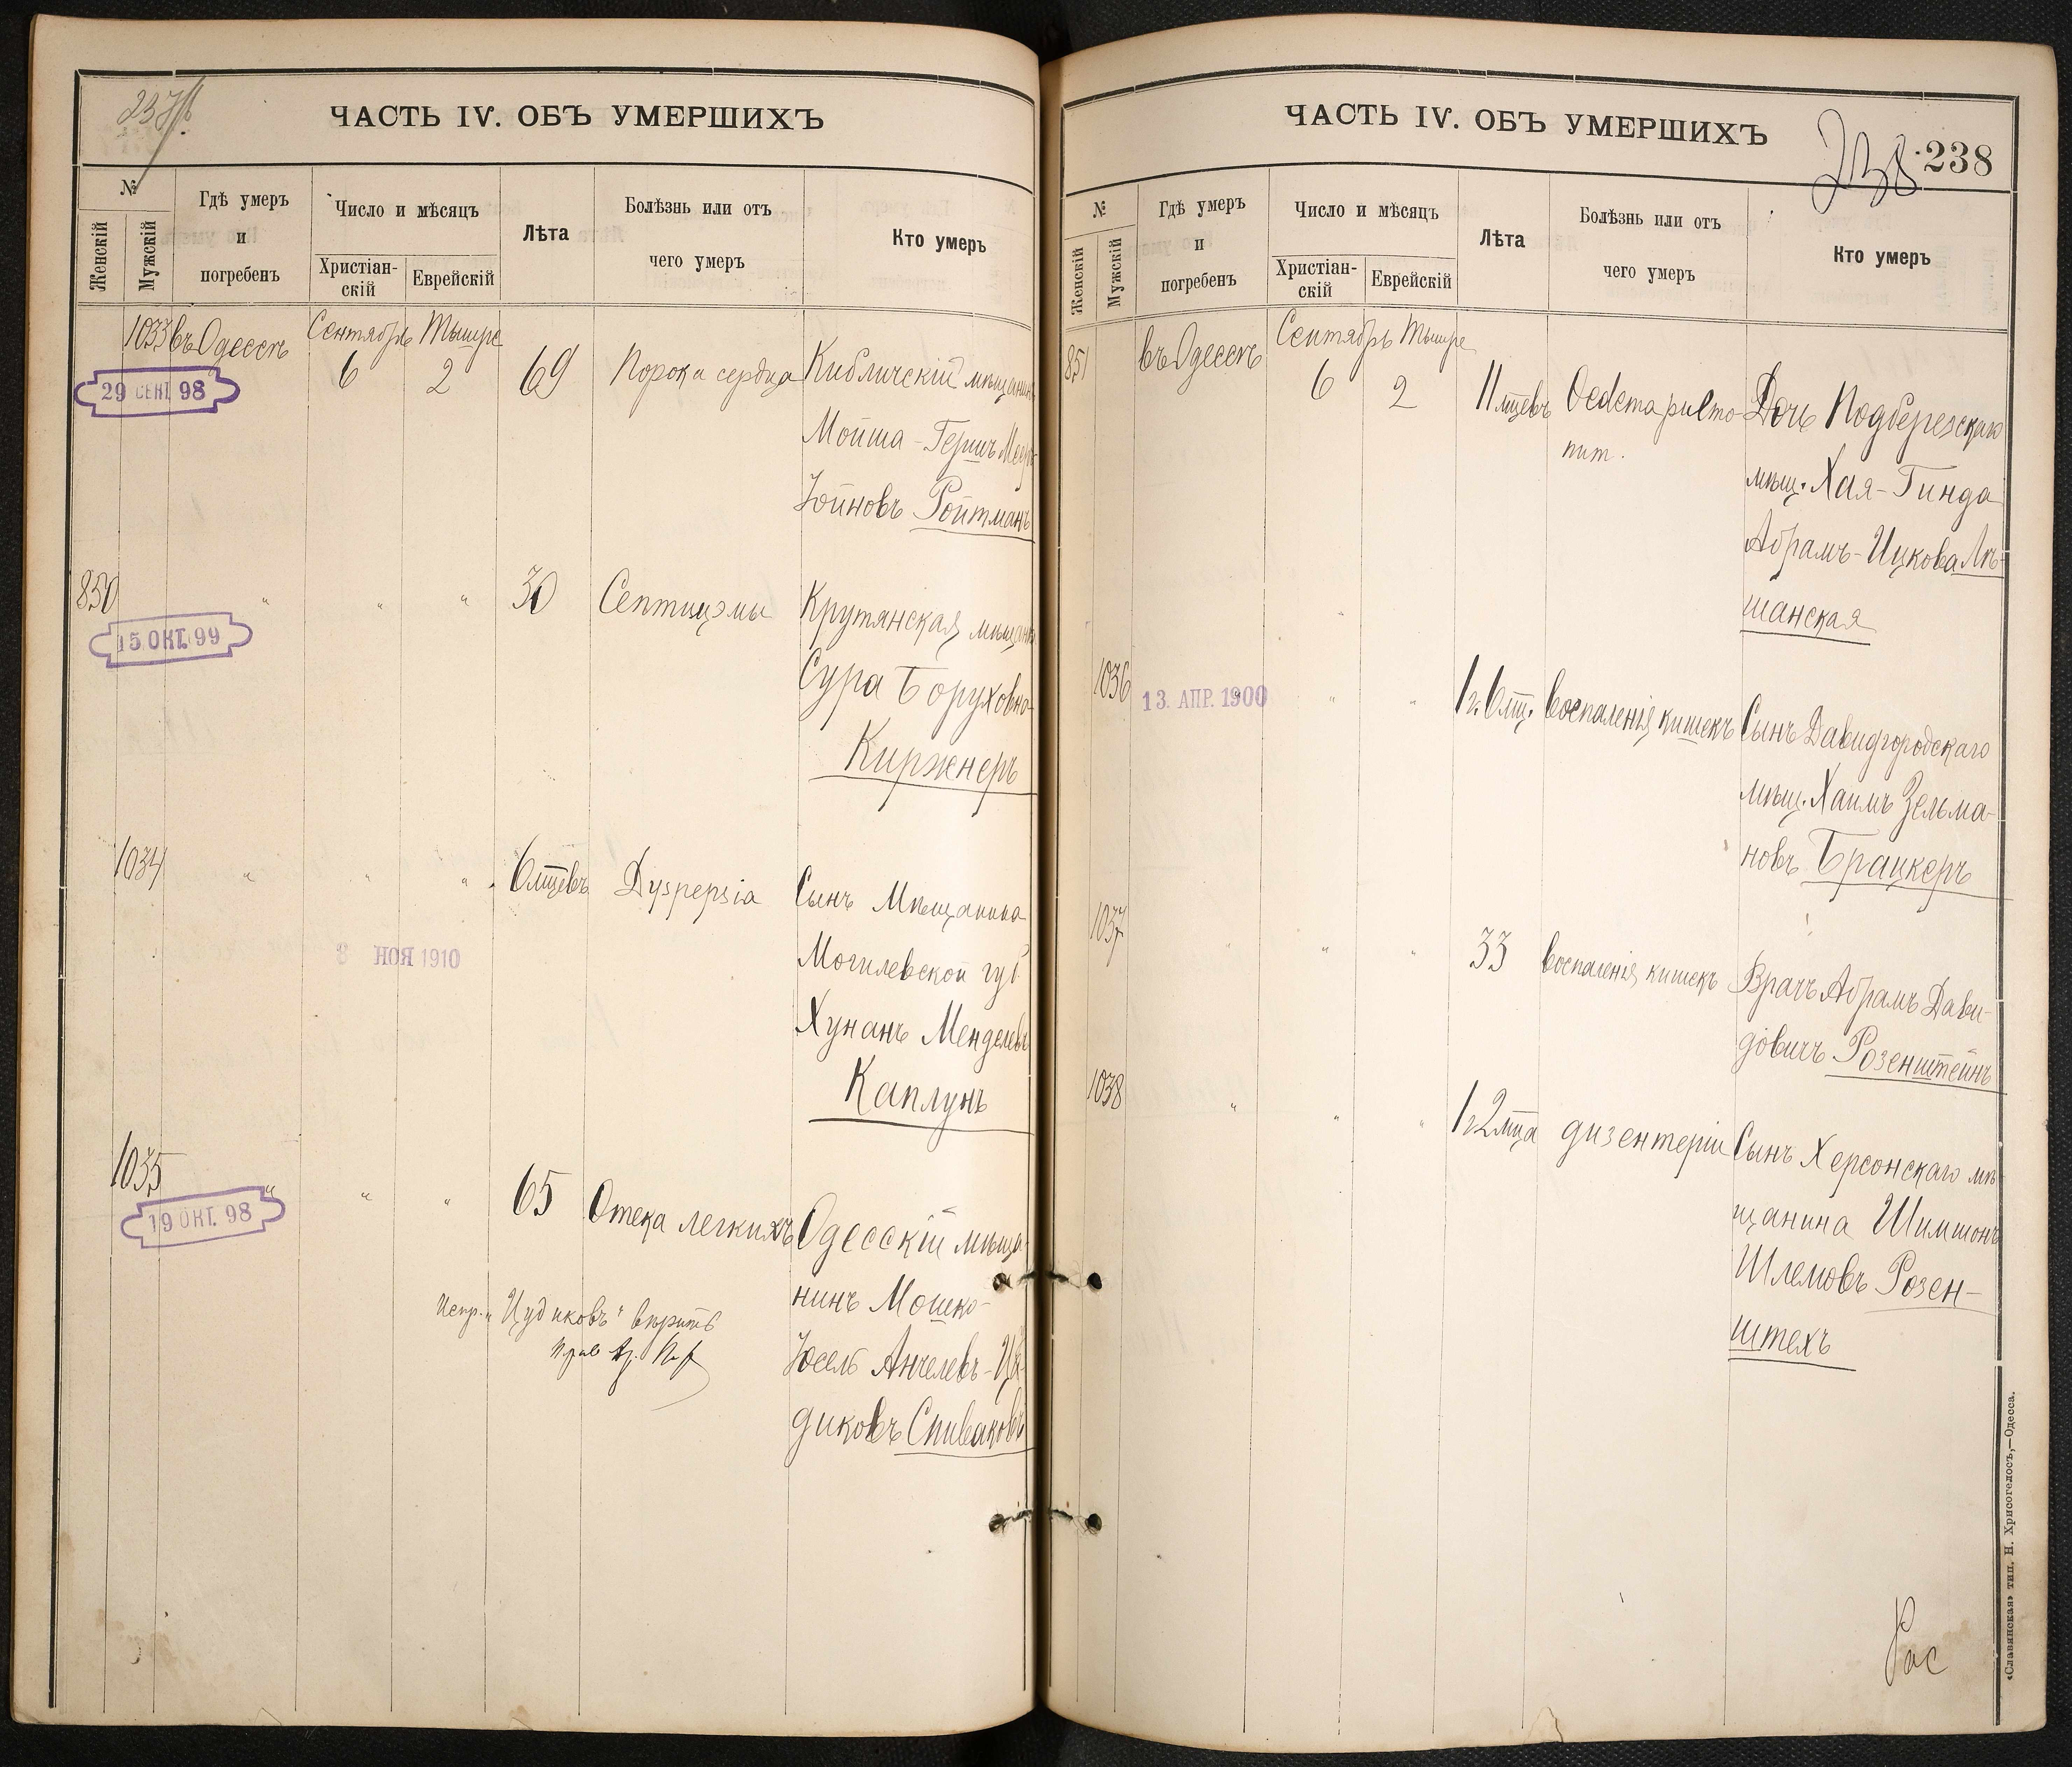 237
ЧАСТЬ IV. ОБЪ УМЕРШИХЪ
№
Женскій
Мужскій
Гдѣ умеръ
и
погребенъ
Число и мѣсяцъ
Христіан-
скій
Еврейскій
Лѣта
Болѣзнь или отъ
чего умеръ
Кто умеръ
1033 въ Одессѣ Сентябрь Тышре
6 2 69 Порока сердца Кибличскій мѣщанинъ
29 СЕНТ. 98
Мойша-Гершъ
Юйновъ Ройтманъ
850 " " " 30 Септицэмы Крутянская мѣщанка
15 ОКТ. 99
Сура Боруховна
Киржнеръ
1034 " " " 6 мцевъ Dyspepsia Сынъ Мѣщанина
8 НОЯ 1910
Могилевской губ
Хунанъ Менделевъ
Каплунъ
1035 " " " 65 Отека легкихъ Одесскій мѣща-
19 ОКТ. 98
нинъ Мошко-
Испр. „Цудиковъ" вѣрить
Юсель Анчелевъ-Цу-
диковъ Спиваковъ
ЧАСТЬ IV. ОБЪ УМЕРШИХЪ
238
238
№
Женскій
Мужскій
Гдѣ умеръ
и
погребенъ
Число и мѣсяцъ
Христіан-
скій
Еврейскій
Лѣта
Болѣзнь или отъ
чего умеръ
Кто умеръ
851 въ Одессѣ Сентябрь Тышре
6 2 11 мцевъ Oedema pulmo- Дочь Подберезскаго
num.
мѣщ. Хая-Гинда
Абрамъ-Ицкова Лѣ-
шанская
1036 13. АПР. 1900 " " 1 г. 6 мц. воспаленія кишекъ Сынъ Давидгородскаго
мѣщ. Хаимъ Зельма-
новъ Брацкеръ
1037 " " " 33 воспаленія кишекъ Врачъ Абрамъ Дави-
довичъ Розенштейнъ
1038 " " " 1 г 2 мца дизентеріи Сынъ Херсонскаго мѣ-
щанина Шимшонъ
Шлемовъ Розен-
штехъ
«Славянская» тип. Н. Хрисогелосъ,—Одесса.